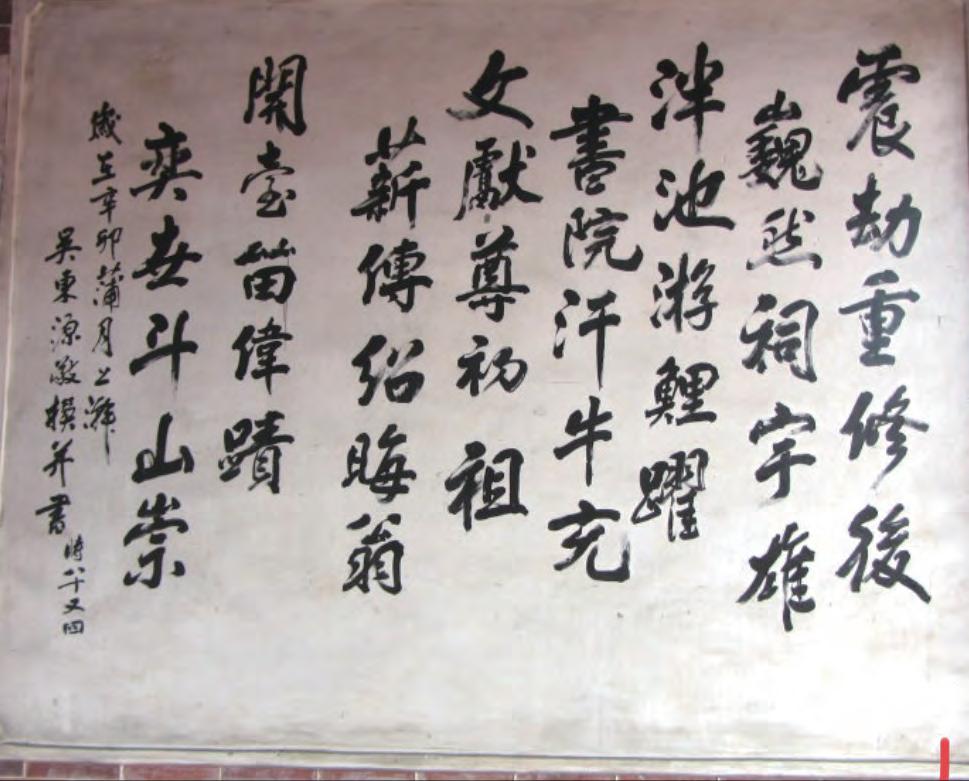 震劫重修後
巍然祠宇雄
泮池游鯉躍
書院汗牛充
文獻尊初祖
薪傳紹晦翁
開臺留偉蹟
奕世斗山崇
歲在辛卯蒲月上澣
吳東源敬撰并書時八十又四